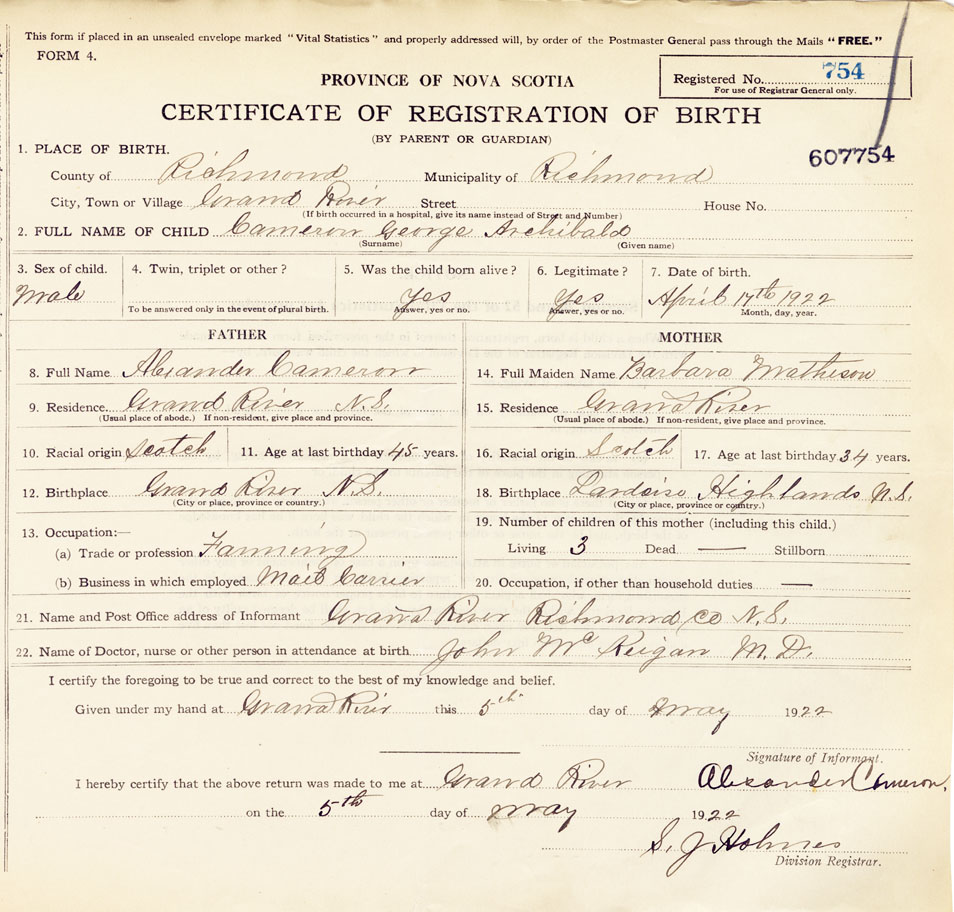 This form if placed in an unsealed envelope marked "Vital Statistics" and properly addressed will, by order of the Postmaster General pass through the Mails "FREE."
FORM 4.
PROVINCE OF NOVA SCOTIA
Registered No. 754
For use of Registrar General only.
CERTIFICATE OF REGISTRATION OF BIRTH
(BY PARENT OR GUARDIAN)
607754
1. PLACE OF BIRTH.
County of Richmond Municipality of Richmond
City, Town or Village Grand River Street House No.
(If birth occurred in a hospital, give its name instead of Street and Number)
2. FULL NAME OF CHILD Cameron George Archibald
(Surname) (Given name)
3. Sex of child. 4. Twin, triplet or other? 5. Was the child born alive? 6. Legitimate? 7. Date of birth.
Male Yes Yes April 17th 1922
To be answered only in the event of plural birth. Answer, yes or no. Answer, yes or no. Month, day, year.
FATHER
8. Full Name Alexander Cameron
9. Residence. Grand River N.S.
(Usual place of abode.) If non-resident, give place and province.
10. Racial origin Scotch 11. Age at last birthday 45 years.
12. Birthplace Grand River N.S.
(City or place, province or country.)
13. Occupation:—
(a) Trade or profession Farming
(b) Business in which employed Mail Carrier
MOTHER
14. Full Maiden Name Barbara Matheson
15. Residence Grand River
(Usual place of abode.) If non-resident, give place and province.
16. Racial origin Scotch 17. Age at last birthday 34 years.
18. Birthplace Lardoise Highlands N.S.
(City or place, province or country.)
19. Number of children of this mother (including this child.)
Living 3 Dead — Stillborn
20. Occupation, if other than household duties —
21. Name and Post Office address of Informant Grand River Richmond Co N.S.
22. Name of Doctor, nurse or other person in attendance at birth John Mc Keigan M.D.
I certify the foregoing to be true and correct to the best of my knowledge and belief.
Given under my hand at Grand River this 5th day of May 1922
Signature of Informant.
I hereby certify that the above return was made to me at Grand River Alexander Cameron.
on the 5th day of May 1922
S. J Holmes
Division Registrar.